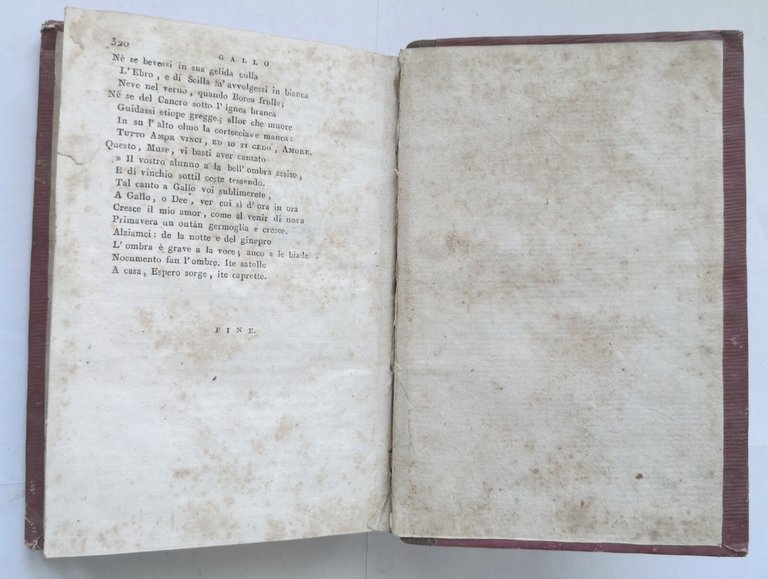 320
GALLO
Nè se bevessi in sua gelida culla
L'Ebro, e di Scilla m'avvolgessi in bianca
Neve nel verno, quando Borea frulla;
Nè se del Cancro sotto l'ignea branca
Guidassi etiope gregge; allor che muore
In su l'alto olmo la corteccia e manca:
TUTTO AMOR VINCI, ED IO TI CEDO, AMORE.
Questo, Muse, vi basti aver cantato
» Il vostro alunno a la bell'ombra assito,
E di vinchio sottil ceste tessendo.
Tal canto a Gallo voi sublimerete,
A Gallo, o Dee, ver cui sì d'ora in ora
Cresce il mio amor, come al venir di nova
Primavera un ontàn germoglia e cresce.
Alziamci: de la notte e del ginepro
L'ombra è grave a la voce; anco a le biade
Nocumento fan l'ombre. Ite satolle
A casa, Espero sorge, ite caprette.
FINE.